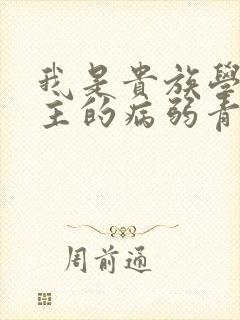 我是貴族學
主的病弱青
周前通